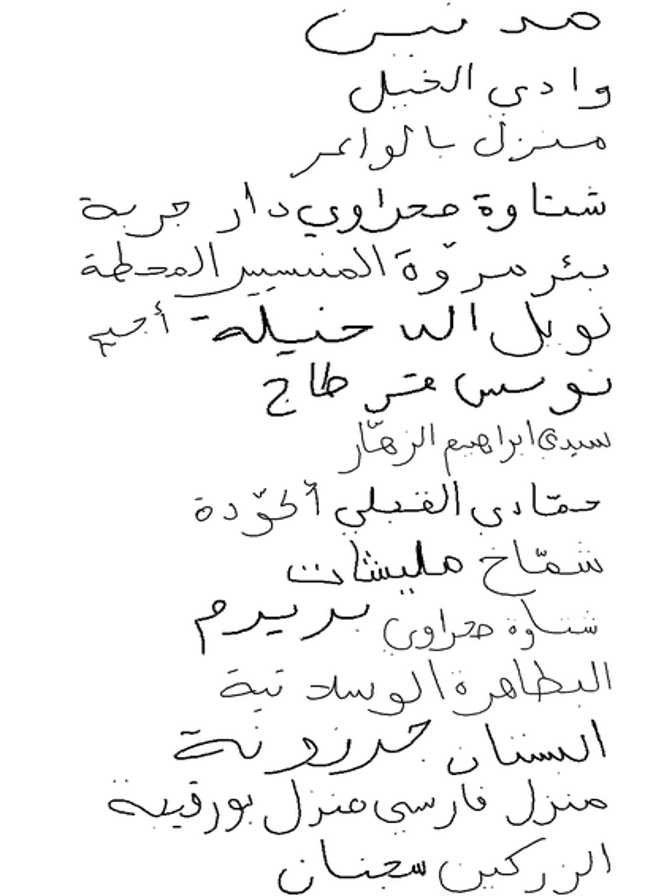 مدنين
وادي الخيل
منزل بالواعر
شتاوة صحراوي دار جربة
بئر مروّة المنسيس المحطة
نوبل حنيلة أجيم
تونس قرطاج
سيدي ابراهيم الزهّار
حمّادي القبلي أكوّدة
شمّاخ مليشات
شتاوة صحراوي بريرم
البطاهرة الوسلاتية
البستان حرزونة
منزل فارسي منزل بورقيبة
الزركين سجنان